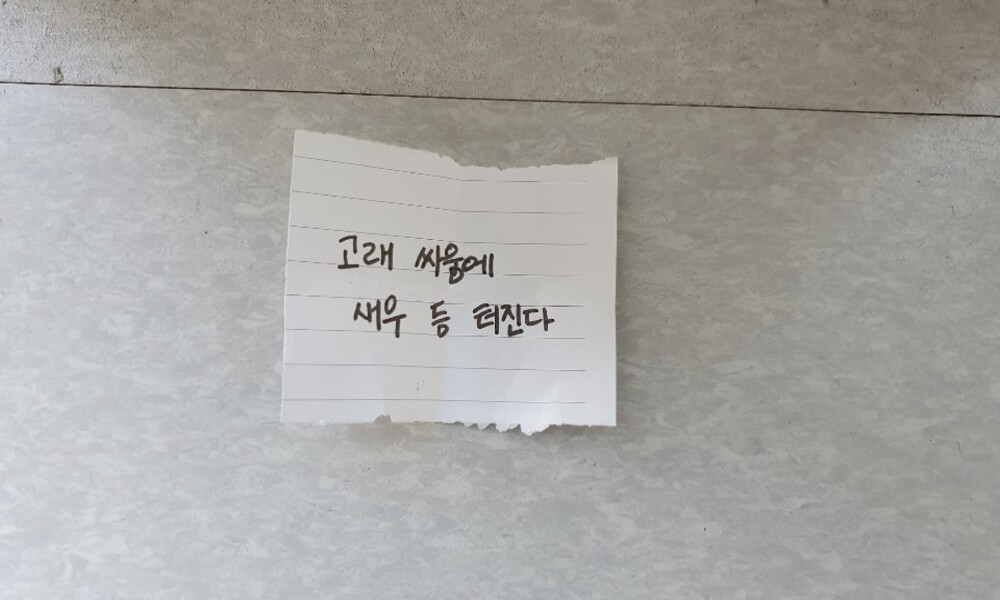 고래 싸움에
새우 등 터진다